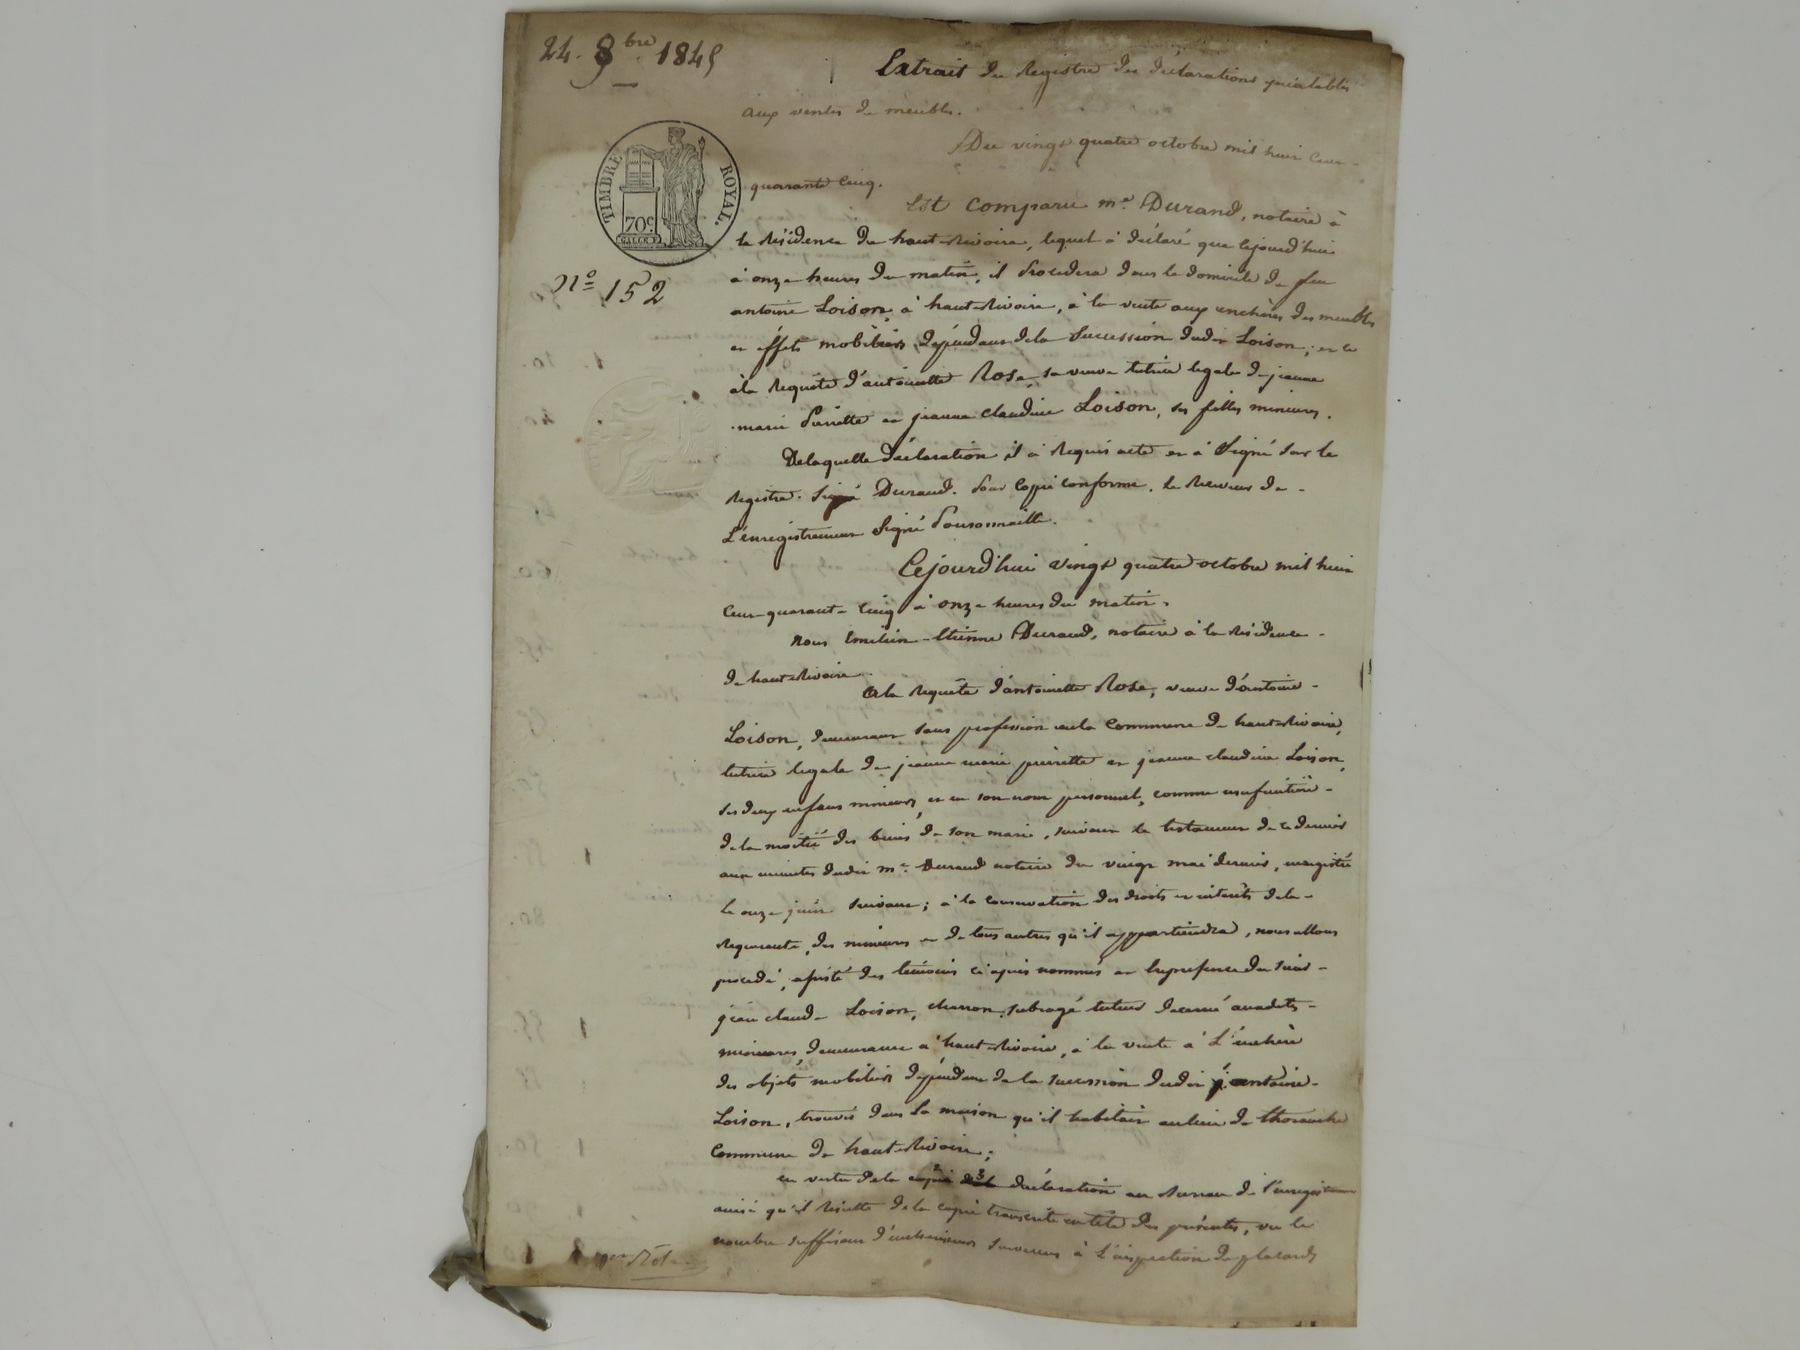 24. 8bre 1845
Extrait du Registre des déclarations préalables
aux ventes de meubles.
Du vingt quatre octobre mil huit cent
quarante cinq.
TIMBRE ROYAL.
70c
Est comparu me. Durand, notaire à
la résidence de haut-Rivoire, lequel a déclaré que cejourd'hui
N° 152
à onze heures du matin, il procédera dans le domicile de feu
antoine Loison, à haut-Rivoire, à la vente aux enchères des meubles
et effets mobiliers dépendant de la succession dudit Loison, et ce
à la requête d'antoinette Rose, sa veuve tutrice legale de jeanne
marie Pierrette et jeanne claudine Loison, ses filles mineures.
De laquelle déclaration il a requis acte et a signé sur le
registre. Signé Durand. Pour copie conforme. Le Receveur de
L'enregistrement signé
Cejourd'hui vingt quatre octobre mil huit
cent quarante cinq à onze heures du matin.
Nous Emilien-Etienne Durand, notaire à la résidence
de haut-Rivoire
A la requête d'antoinette Rose, veuve d'antoine
Loison, demeurant sans profession en la commune de haut-Rivoire,
tutrice legale de jeanne marie pierrette et jeanne claudine Loison,
ses deux enfans mineurs, et en son nom personnel, comme usufruitière
de la moitié des biens de son mari, suivant le testament de ce dernier
aux minutes dudit me. Durand notaire du vingt mai dernier, enregistré
le onze juin suivant; à la conservation des droits et intérêts de la
requerante, des mineures et de tous autres qu'il appartiendra, nous allons
procéder, assisté des témoins ci après nommés en la présence du sieur
jean claude Loison, charron, subrogé tuteur
mineures, demeurant à haut-Rivoire, à la vente à L'enchère
des objets mobiliers dépendant de la succession dudit antoine
Loison, trouvés dans la maison qu'il habitait au lieu de
commune de haut-Rivoire;
en vertu de la déclaration au bureau de l'enregistrement
ainsi qu'il résulte de la copie transcrite en tête des présentes, vu le
nombre suffisant d'enchérisseurs survenus à L'inspection de placards